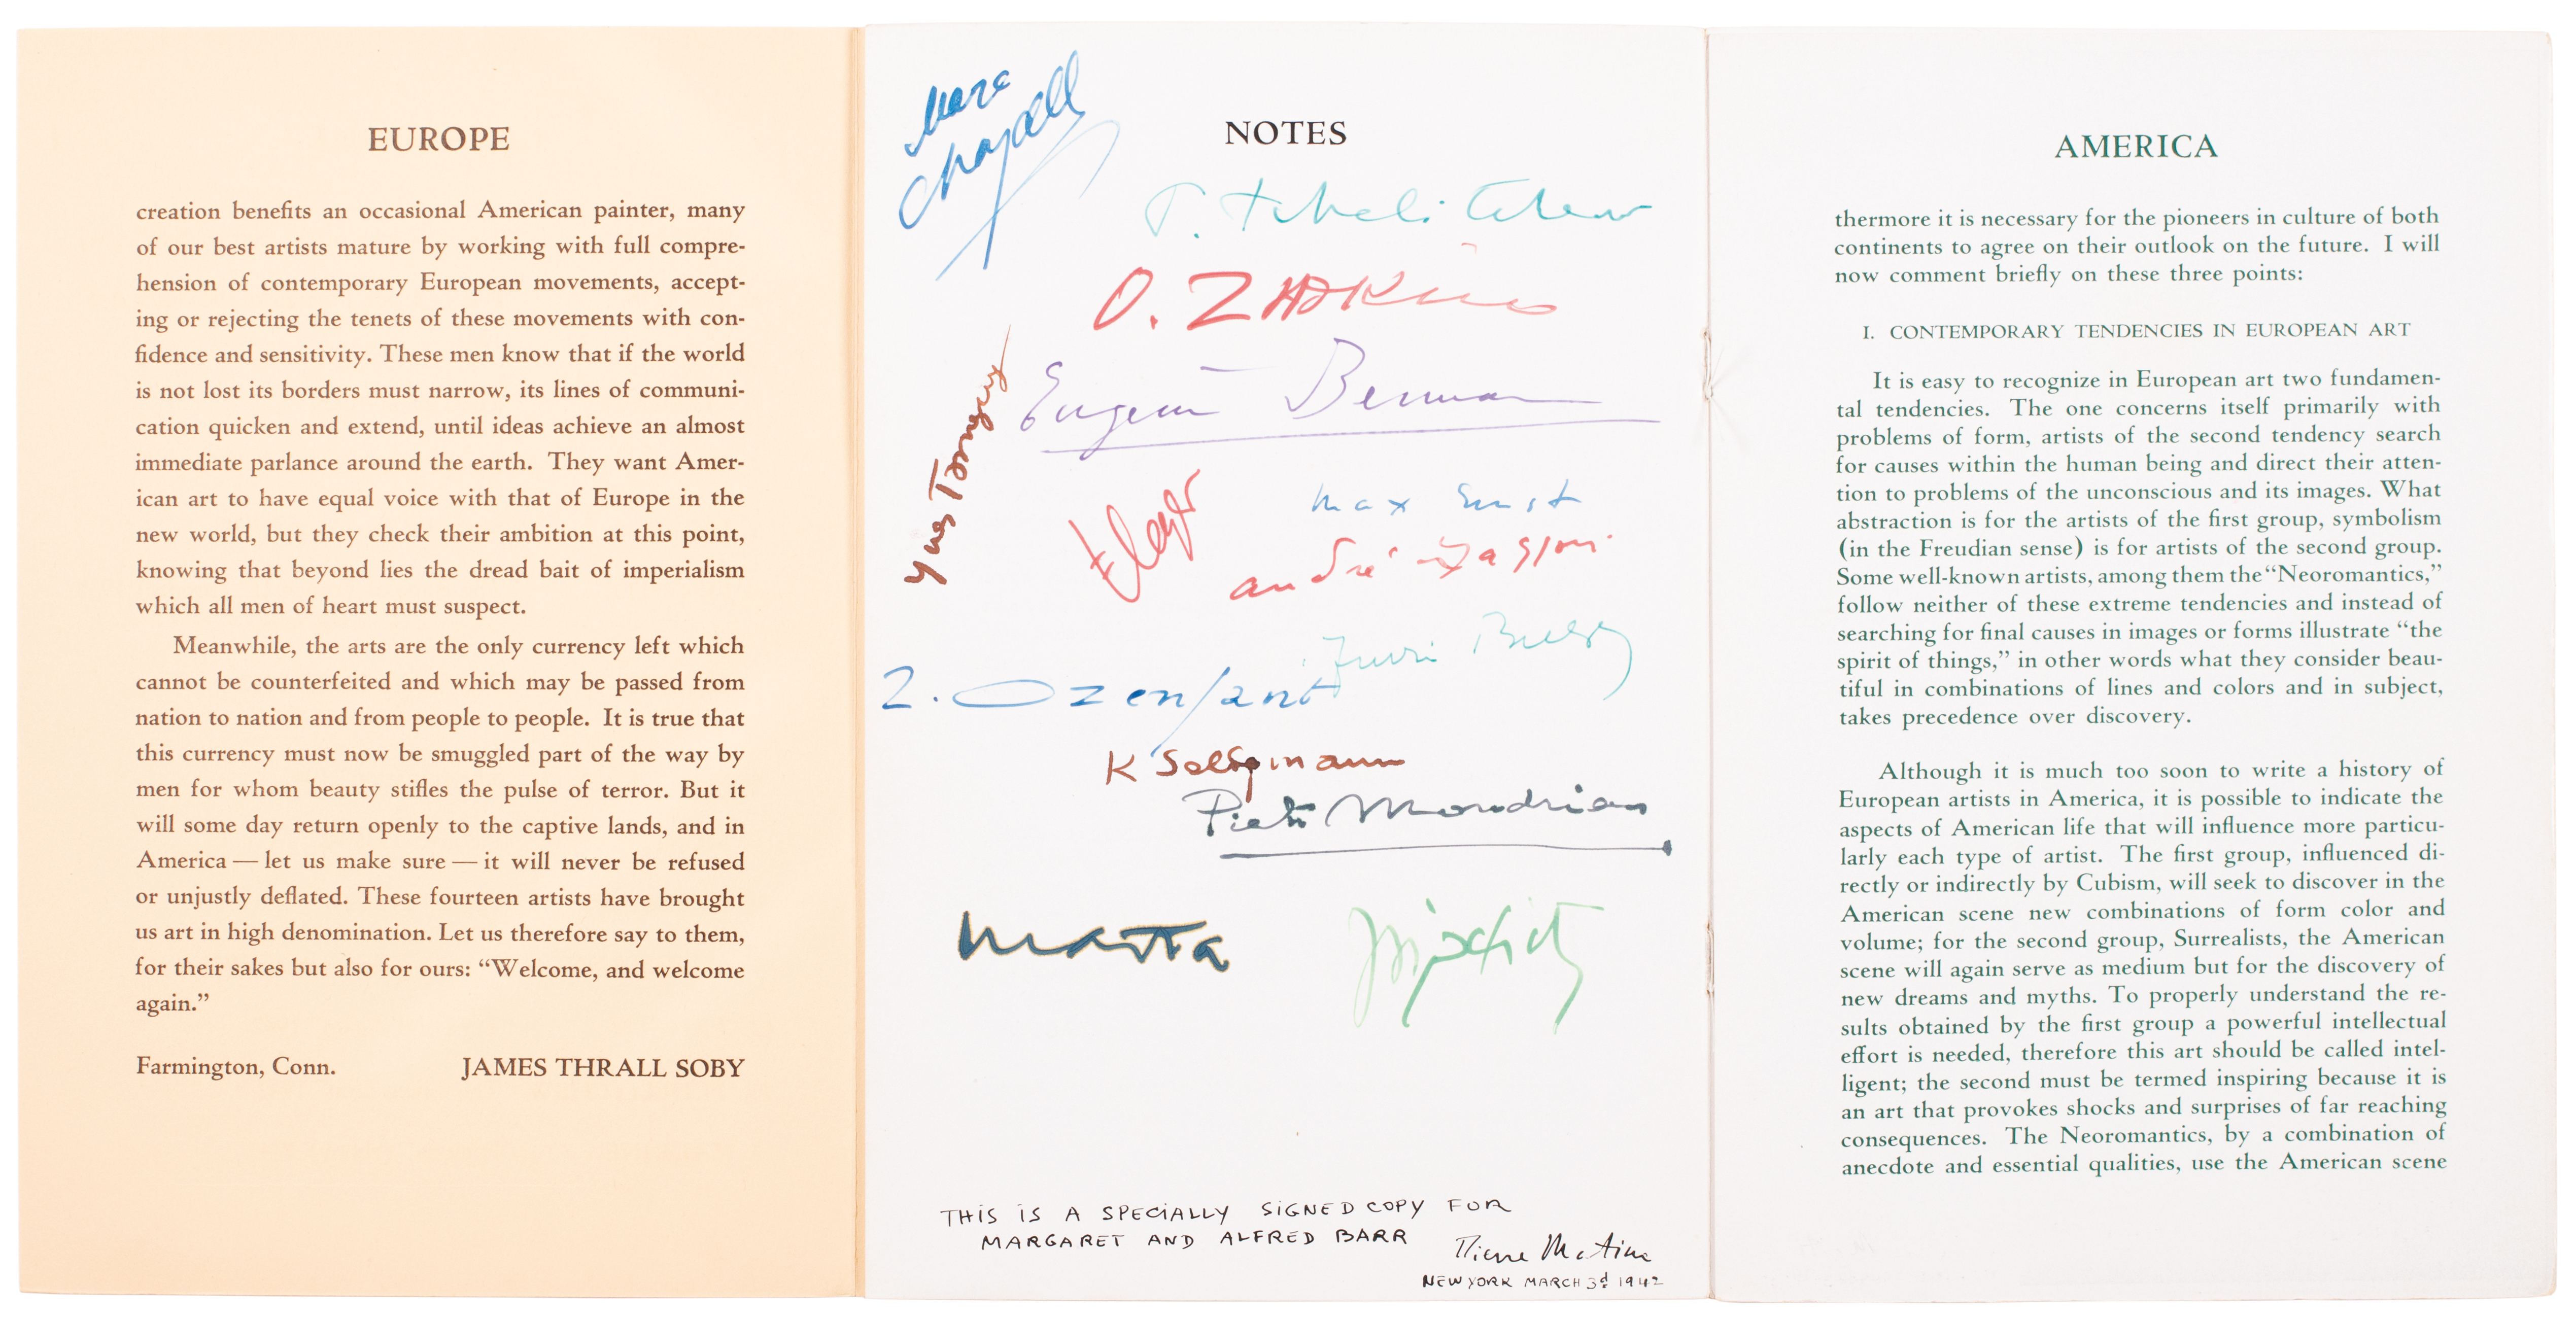 EUROPE
creation benefits an occasional American painter, many
of our best artists mature by working with full compre-
hension of contemporary European movements, accept-
ing or rejecting the tenets of these movements with con-
fidence and sensitivity. These men know that if the world
is not lost its borders must narrow, its lines of communi-
cation quicken and extend, until ideas achieve an almost
immediate parlance around the earth. They want Amer-
ican art to have equal voice with that of Europe in the
new world, but they check their ambition at this point,
knowing that beyond lies the dread bait of imperialism
which all men of heart must suspect.
Meanwhile, the arts are the only currency left which
cannot be counterfeited and which may be passed from
nation to nation and from people to people. It is true that
this currency must now be smuggled part of the way by
men for whom beauty stifles the pulse of terror. But it
will some day return openly to the captive lands, and in
America — let us make sure — it will never be refused
or unjustly deflated. These fourteen artists have brought
us art in high denomination. Let us therefore say to them,
for their sakes but also for ours: “Welcome, and welcome
again.”
Farmington, Conn. JAMES THRALL SOBY
NOTES
Marc
Chagall
P. Tchelitchew
O. ZADKINE
Eugene Berman
Yves Tanguy
FLeger
max Ernst
andré Masson.
Ozenfant
K Seligmann
Piet Mondrian
Matta
Lipchitz
THIS IS A SPECIALLY SIGNED COPY FOR
MARGARET AND ALFRED BARR
Pierre Matisse
NEW YORK MARCH 3d 1942
AMERICA
thermore it is necessary for the pioneers in culture of both
continents to agree on their outlook on the future. I will
now comment briefly on these three points:
I. CONTEMPORARY TENDENCIES IN EUROPEAN ART
It is easy to recognize in European art two fundamen-
tal tendencies. The one concerns itself primarily with
problems of form, artists of the second tendency search
for causes within the human being and direct their atten-
tion to problems of the unconscious and its images. What
abstraction is for the artists of the first group, symbolism
(in the Freudian sense) is for artists of the second group.
Some well-known artists, among them the “Neoromantics,”
follow neither of these extreme tendencies and instead of
searching for final causes in images or forms illustrate “the
spirit of things,” in other words what they consider beau-
tiful in combinations of lines and colors and in subject,
takes precedence over discovery.
Although it is much too soon to write a history of
European artists in America, it is possible to indicate the
aspects of American life that will influence more particu-
larly each type of artist. The first group, influenced di-
rectly or indirectly by Cubism, will seek to discover in the
American scene new combinations of form color and
volume; for the second group, Surrealists, the American
scene will again serve as medium but for the discovery of
new dreams and myths. To properly understand the re-
sults obtained by the first group a powerful intellectual
effort is needed, therefore this art should be called intel-
ligent; the second must be termed inspiring because it is
an art that provokes shocks and surprises of far reaching
consequences. The Neoromantics, by a combination of
anecdote and essential qualities, use the American scene